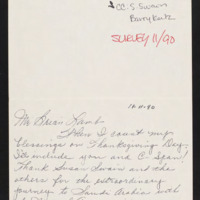 CC: S. Swain
Barry Katz
SURVEY 11/90
12-11-90
Mr. Brian Lamb
When I count my
blessings on Thanksgiving Day,
I'll include you and C-Span!
Thank Susan Swain and the
others for the extraordinary
journey to Saudi Arabia with